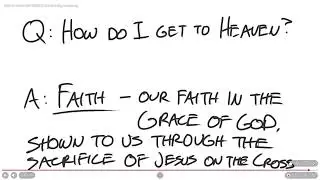 Q: HOW DO I GET TO HEAVEN?
A: FAITH - OUR FAITH IN THE
GRACE OF GOD,
SHOWN TO US THROUGH THE
SACRIFICE OF JESUS ON THE CROSS